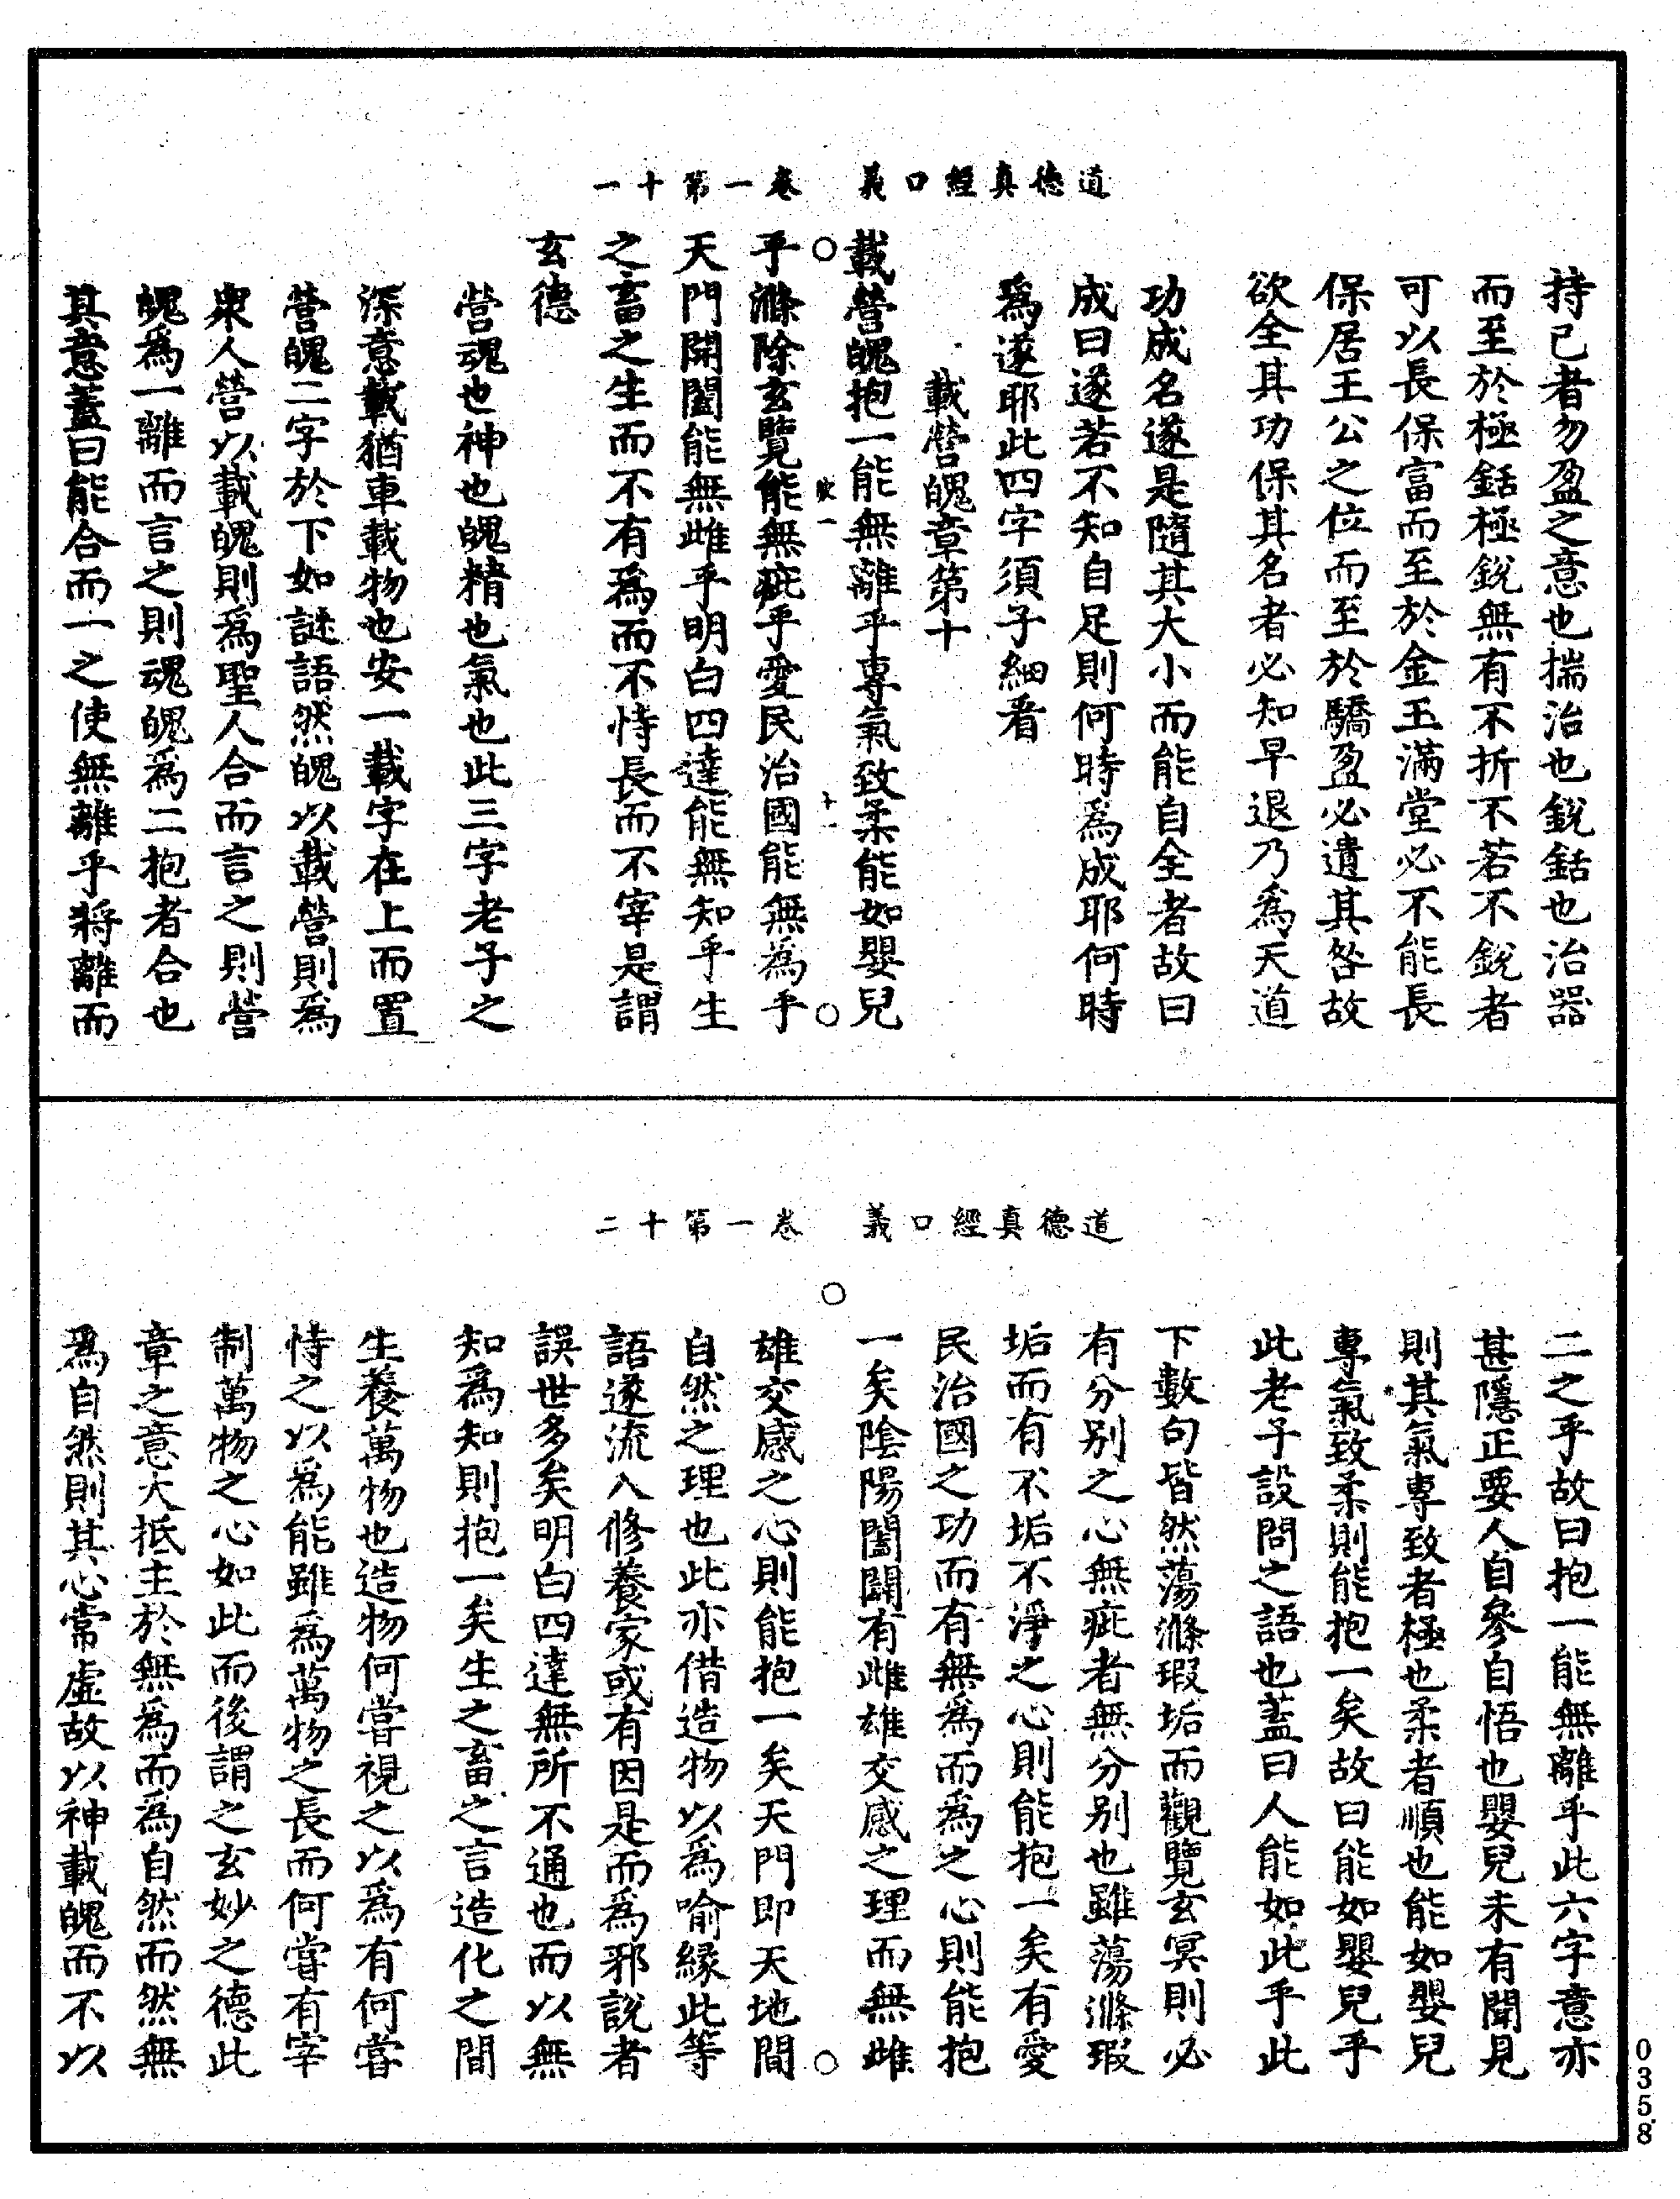 道德真經口義　卷一第十一
持已者勿盈之意也揣治也銳銛也治器
而至於極銛極銳無有不折不若不銳者
可以長保富而至於金玉滿堂必不能長
保居王公之位而至於驕盈必遺其咎故
欲全其功保其名者必知早退乃爲天道
功成名遂是隨其大小而能自全者故曰
成曰遂若不知自足則何時爲成耶何時
爲遂耶此四字須子細看
載營魄章第十
載營魄抱一能無離乎專氣致柔能如嬰兒
乎滌除玄覽能無疵乎愛民治國能無爲乎
天門開闔能無雌乎明白四達能無知乎生
之畜之生而不有爲而不恃長而不宰是謂
玄德
營魂也神也魄精也氣也此三字老子之
深意載猶車載物也安一載字在上而置
營魄二字於下如謎語然魄以載營則爲
衆人營以載魄則爲聖人合而言之則營
魄爲一離而言之則魂魄爲二抱者合也
其意蓋曰能合而一之使無離乎將離而
道德真經口義　卷一第十二
二之乎故曰抱一能無離乎此六字意亦
甚隱正要人自參自悟也嬰兒未有聞見
則其氣專致者極也柔者順也能如嬰兒
專氣致柔則能抱一矣故曰能如嬰兒乎
此老子設問之語也蓋曰人能如此乎此
下數句皆然蕩滌瑕垢而觀覽玄冥則必
有分別之心無疵者無分別也雖蕩滌瑕
垢而有不垢不淨之心則能抱一矣有愛
民治國之功而有無爲而爲之心則能抱
一矣陰陽闔闢有雌雄交感之理而無雌
雄交感之心則能抱一矣天門即天地間
自然之理也此亦借造物以爲喻緣此等
語遂流入修養家或有因是而爲邪說者
誤世多矣明白四達無所不通也而以無
知爲知則抱一矣生之畜之言造化之間
生養萬物也造物何嘗視之以爲有何嘗
恃之以爲能雖爲萬物之長而何嘗有宰
制萬物之心如此而後謂之玄妙之德此
章之意大抵主於無爲而爲自然而然無
爲自然則其心常虛故以神載魄而不以
0358